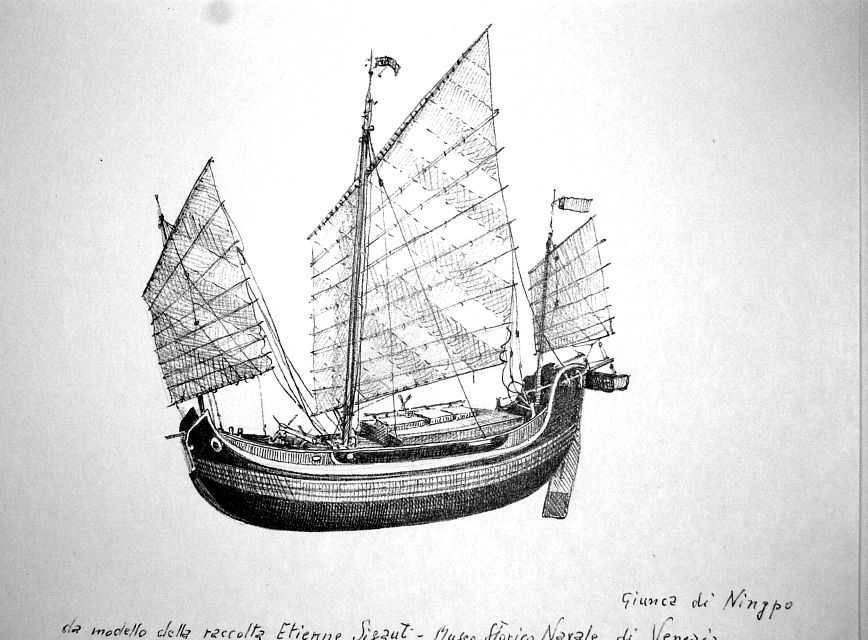 Giunca di Ningpo
da modello della raccolta Etienne Sigaut - Museo Storico Navale di Venezia